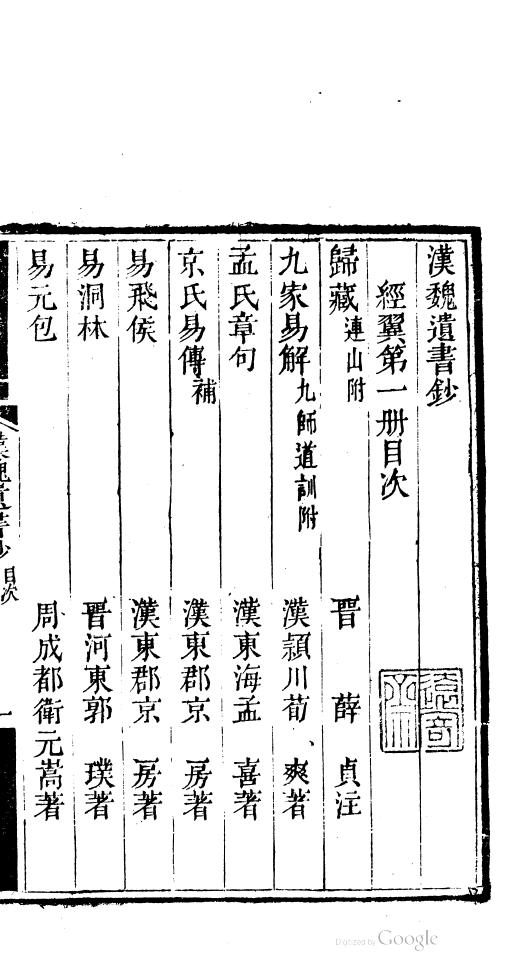 漢魏遺書鈔
經翼第一册目次
歸藏連山附 晉 薛 貞注
九家易解九師道訓附 漢潁川荀、爽著
孟氏章句 漢東海孟 喜著
京氏易傳補 漢東郡京 房著
易飛侯 漢東郡京 房著
易洞林 晋河東郭 璞著
易元包 周成都衛元嵩著
漢魏遺書鈔 目次 一
Digitized by Google